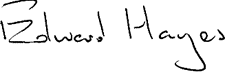 Edward Hayes